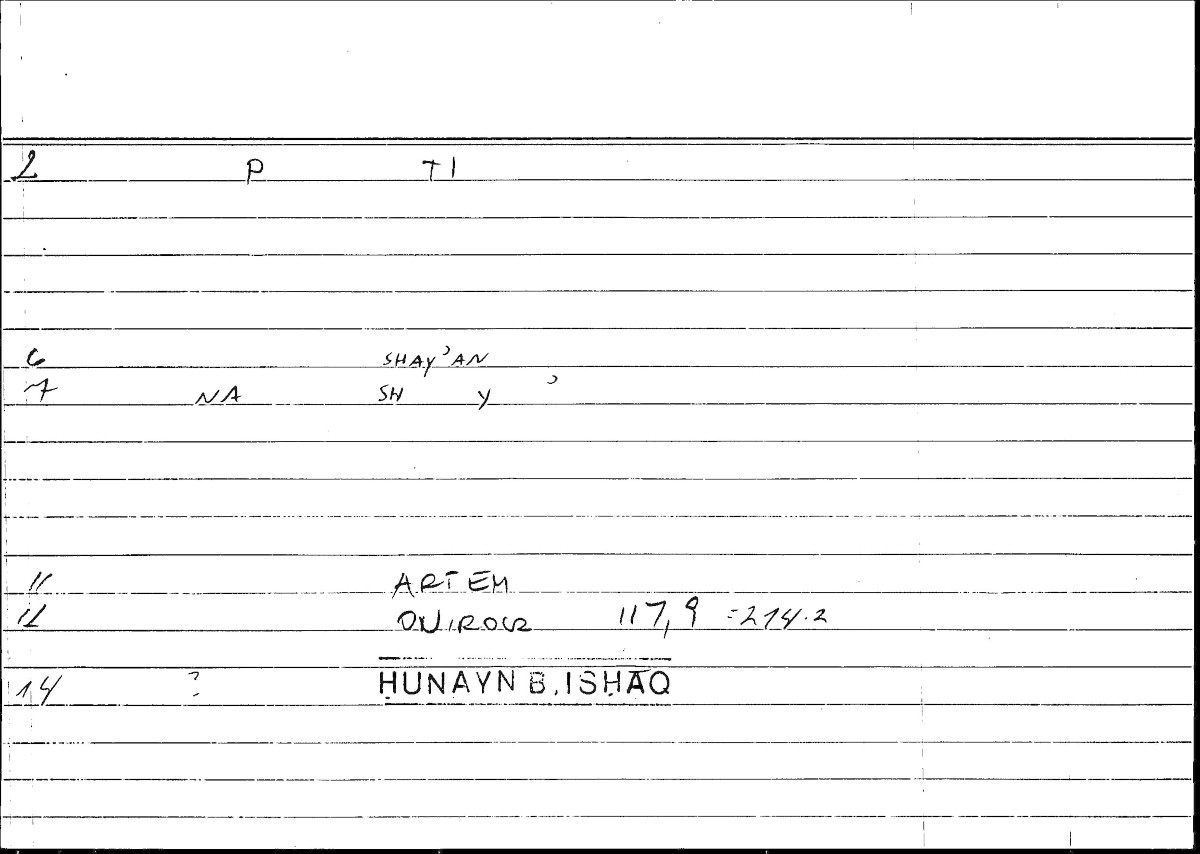 2 P TI
6 SHAY’AN
7 NA SH Y ’
11 ARTEM
12 ONIROCR 117,9 =274.2
14 ? ḤUNAYN B. ISḤĀQ